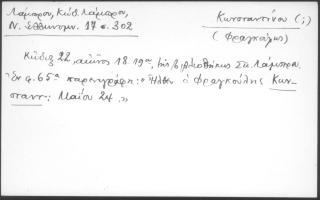 Λάμπρου, Κώδ. Λάμπρου,
Ν. Ἑλληνομν. 17 σ. 302
Κωνσταντίνου (;)
(Φραγκούλης)
Κῶδιξ 22, αἰῶνος 18.19ου, τῆς βιβλιοθήκης Σπ. Λάμπρου.
Ἐν φ. 65α παρενγράφη: "Ἦλθεν ὁ Φραγκούλης Κων-
σταντ: Μαΐου 24."